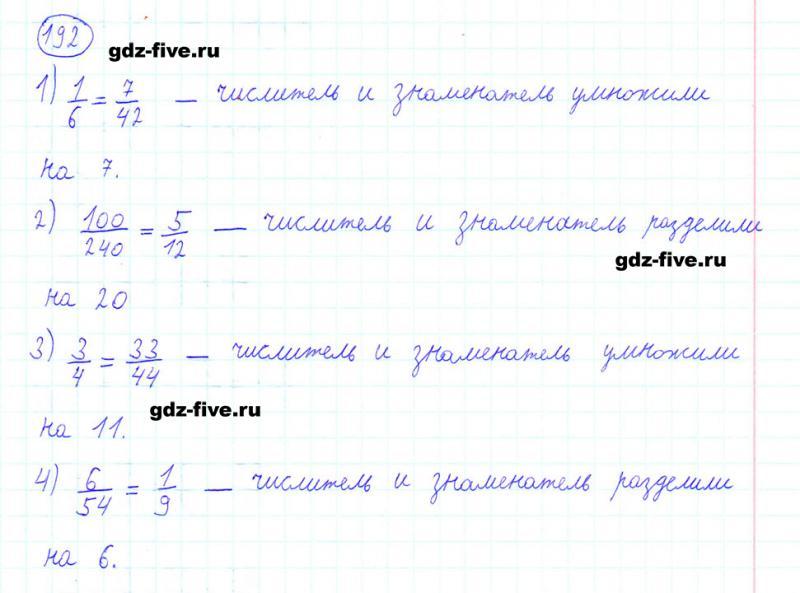 192
gdz-five.ru
1) 1/6 = 7/42 — числитель и знаменатель умножили
на 7.
2) 100/240 = 5/12 — числитель и знаменатель разделили
gdz-five.ru
на 20
3) 3/4 = 33/44 — числитель и знаменатель умножили
gdz-five.ru
на 11.
4) 6/54 = 1/9 — числитель и знаменатель разделили
на 6.